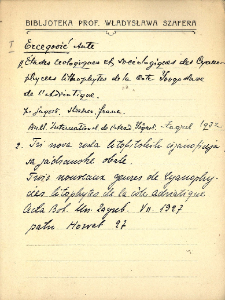 BIBLJOTEKA PROF. WŁADYSŁAWA SZAFERA
I Ercegović Ante
1. Études écologiques et sociologiques des Cyano-
phycées lithophytes de la côte Yougoslave
de l'Adriatique.
franc.
Bull. Internat. Zagreb 1932
2. Tri nova roda litofitskih cijanoficeja
sa jadranske obale.
Trois nouveaux genres de Cyanophy-
cées lithophytes de la côte adriatique.
Acta Bot. Un. Zagreb. VII 1927
patrz Horvat 27